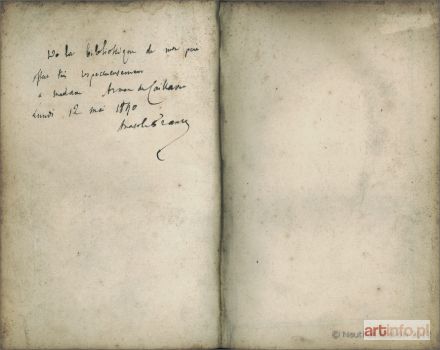 De la bibliothèque de mon père
offert très respectueusement
a madame Arman de Caillavet
Lundi 12 mai 1890
Anatole France
© Neut
artinfo.pl